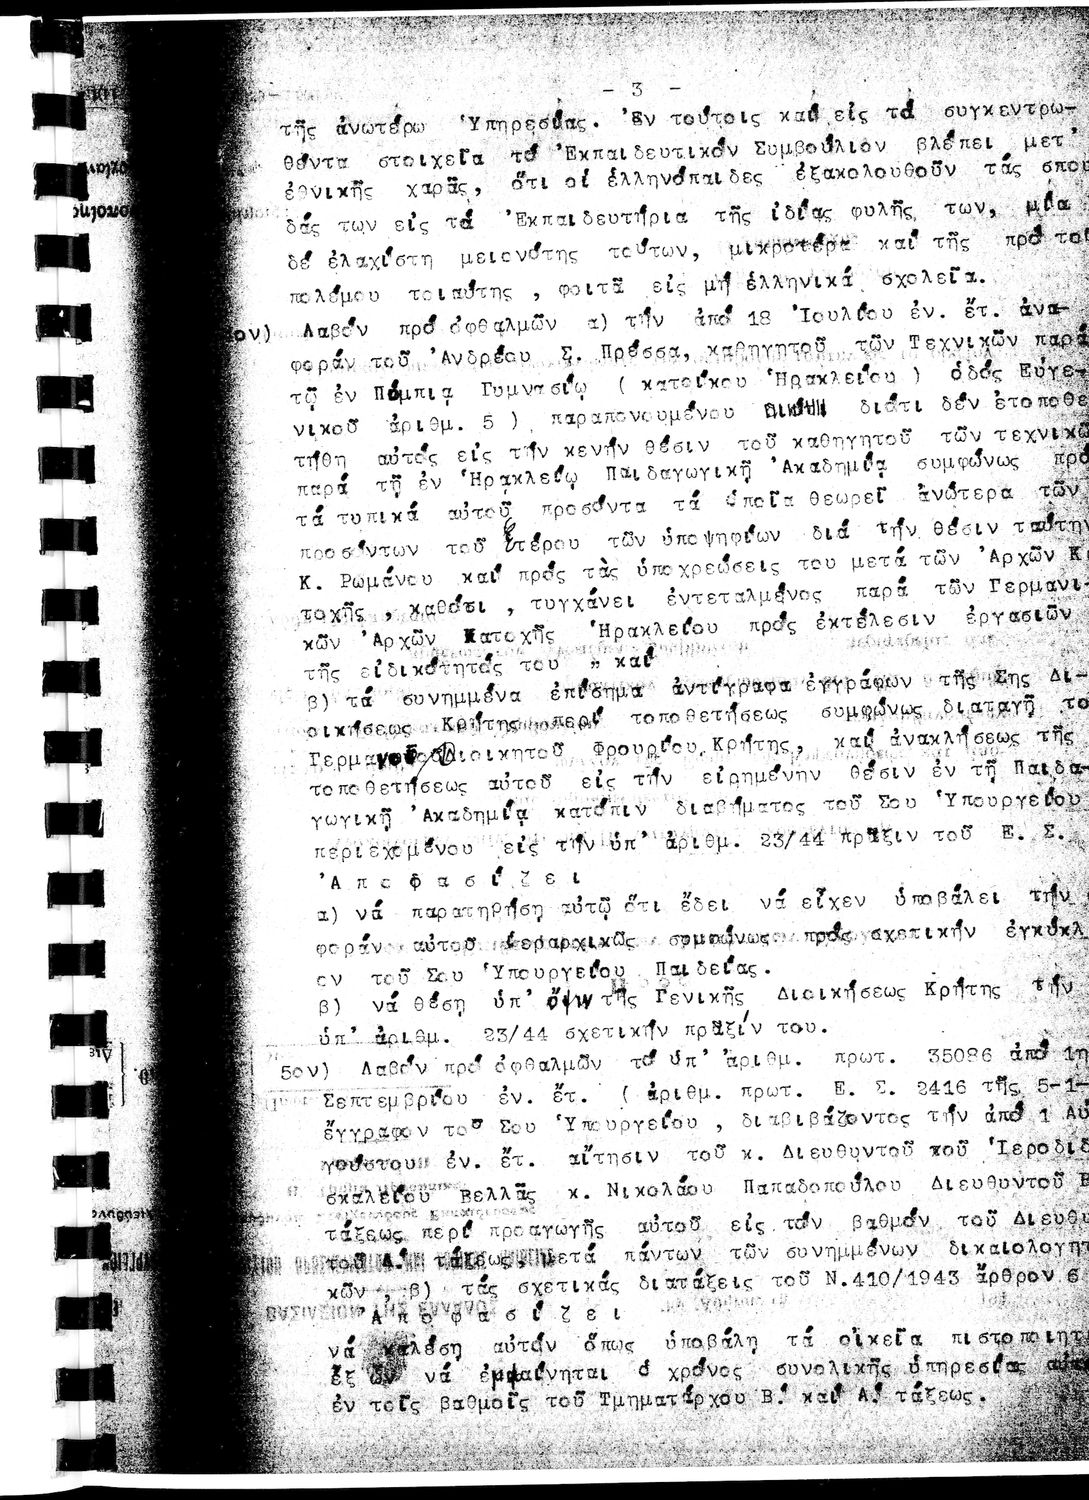 - 3 -
τῆς ἀνωτέρω Ὑπηρεσίας. Ἐν τούτοις καί εἰς τά συγκεντρω-
θέντα στοιχεῖα τό Ἐκπαιδευτικόν Συμβούλιον βλέπει μετ'
ἐθνικῆς χαρᾶς, ὅτι οἱ ἑλληνόπαιδες ἐξακολουθοῦν τάς σπου
δάς των εἰς τά Ἐκπαιδευτήρια τῆς ἰδίας φυλῆς των, μία
δέ ἐλαχίστη μειονότης τούτων, μικροτέρα καί τῆς πρό τοῦ
πολέμου τοιαύτης , φοιτᾶ εἰς μή ἑλληνικά σχολεῖα.
ον) Λαβόν πρό ὀφθαλμῶν α) τήν ἀπό 18 Ἰουλίου ἐν. ἔτ. ἀνα-
φοράν τοῦ Ἀνδρέου Σ. Πρέσσα, καθηγητοῦ τῶν Τεχνικῶν παρά
τῷ ἐν Πόμπιᾳ Γυμνασίῳ ( κατοίκου Ἡρακλείου ) ὁδός Εὐγε-
νικοῦ ἀριθμ. 5 ) παραπονουμένου διότι δέν ἐτοποθε
τήθη αὐτός εἰς τήν κενήν θέσιν τοῦ καθηγητοῦ τῶν τεχνικῶ
παρά τῇ ἐν Ἡρακλείῳ Παιδαγωγικῇ Ἀκαδημίᾳ συμφώνως πρό
τά τυπικά αὐτοῦ προσόντα τά ὁποῖα θεωρεῖ ἀνώτερα τῶν
προσόντων τοῦ ἑτέρου τῶν ὑποψηφίων διά τήν θέσιν ταύτην
Κ. Ρωμάνου καί πρός τὰς ὑποχρεώσεις του μετά τῶν Ἀρχῶν Κ
τοχῆς , καθότι , τυγχάνει ἐντεταλμένος παρά τῶν Γερμανι-
κῶν Ἀρχῶν Κατοχῆς Ἡρακλείου πρός ἐκτέλεσιν ἐργασιῶν
τῆς εἰδικότητός του " καί
β) τά συνημμένα ἐπίσημα ἀντίγραφα ἐγγράφων τῆς Σης Δι-
οικήσεως Κρήτης περί τοποθετήσεως συμφώνως διαταγῇ το
Γερμανοῦ Διοικητοῦ Φρουρίου Κρήτης, καί ἀνακλήσεως τῆς
τοποθετήσεως αὐτοῦ εἰς τήν εἰρημένην θέσιν ἐν τῇ Παιδα-
γωγικῇ Ἀκαδημίᾳ κατόπιν διαβήματος τοῦ Σου Ὑπουργείου
περιεχομένου εἰς τήν ὑπ' ἀριθμ. 23/44 πρᾶξιν τοῦ Ε. Σ.
Ἀ π ο φ α σ ί ζ ε ι
α) νά παρατηρήσῃ αὐτῷ ὅτι ἔδει νά εἶχεν ὑποβάλει τήν
φοράν αὐτοῦ ἱεραρχικῶς συμφώνως πρός σχετικήν ἐγκύκλ
ον τοῦ Σου Ὑπουργείου Παιδείας.
β) νά θέσῃ ὑπ' ὄψιν τῆς Γενικῆς Διοικήσεως Κρήτης τήν
ὑπ' ἀριθμ. 23/44 σχετικήν πρᾶξίν του.
5ον) Λαβόν πρό ὀφθαλμῶν τό ὑπ' ἀριθμ. πρωτ. 35086 ἀπό 1η
Σεπτεμβρίου ἐν. ἔτ. ( ἀριθμ. πρωτ. Ε. Σ. 2416 τῆς 5-1-
ἔγγραφον τοῦ Σου Ὑπουργείου , διαβιβάζοντος τήν ἀπό 1 Αὐ
γούστου ἐν. ἔτ. αἴτησιν τοῦ κ. Διευθυντοῦ τοῦ Ἱεροδιδ
σκαλείου Βελλᾶς κ. Νικολάου Παπαδοπούλου Διευθυντοῦ Β
τάξεως περί προαγωγῆς αὐτοῦ εἰς τόν βαθμόν τοῦ Διευθυ
τοῦ Α. τάξεως, μετά πάντων τῶν συνημμένων δικαιολογητ
κῶν , β) τάς σχετικάς διατάξεις τοῦ Ν.410/1943 ἄρθρον 6
Ἀ π ο φ α σ ί ζ ε ι
νά καλέσῃ αὐτόν ὅπως ὑποβάλῃ τά οἰκεῖα πιστοποιητ
ἐξ ὧν νά ἐμφαίνηται ὁ χρόνος συνολικῆς ὑπηρεσίας
ἐν τοῖς βαθμοῖς τοῦ Τμηματάρχου Β. καί Α. τάξεως.